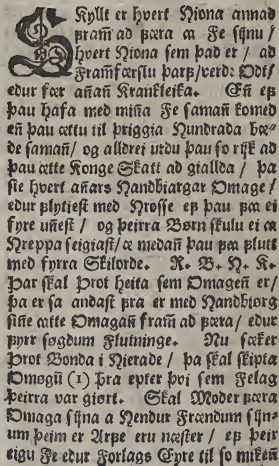 SKyllt er hvert Hiona annad
fram ad færa a Fe sijnu /
hvert Hiona sem þad er / ad
Framfærslu þarf / verde Odt /
edur fær annañ Krankleika. Eñ ef
þau hafa med miña Fe samañ komed
eñ þau ættu til þriggia Hundrada bæ-
de samañ / og alldrei urdu þau so rijk ad
þau ætte Konge Skatt ad giallda / þa
sie hvert añars Handbiargar Omage /
edur flytiest med Hrosse ef þau fæa ei
fyre uñest / og þeirra Børn skulu ei a
Hreppa seigiast / a medañ þau fæa flutt
med fyrra Skilorde. R. B. H. K.
Þar skal Þrot heita sem Omageñ er /
þa er sa andast fra er med Handbiorg
siñe atte Omagañ fram ad færa / edur
fyrr søgdum Flutninge. Nu sæker
Þrot Bonda i Hierade / þa skal skipta
Omøgū (1) fra epter þvi sem Felag
þeirra var giørt. Skal Moder færa
Omaga sijna a Hendur Frændum sijn-
um þeim er Arfe eru næster / ef þeir
eigu Fe edur Forlags Eyre til so mikeñ